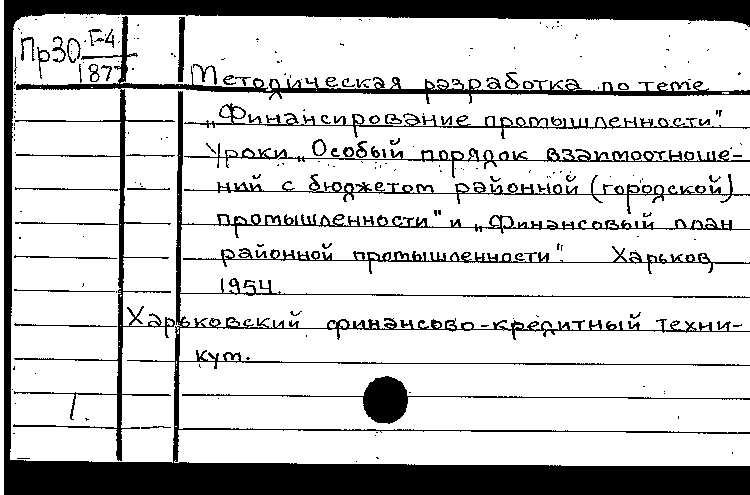 Пр30 Г-4
1877
Методическая разработка по теме
„Финансирование промышленности".
Уроки „Особый порядок взаимоотноше-
ний с бюджетом районной (городской)
промышленности" и „Финансовый план
районной промышленности". Харьков,
1954.
Харьковский финансово-кредитный техни-
кум.
1.